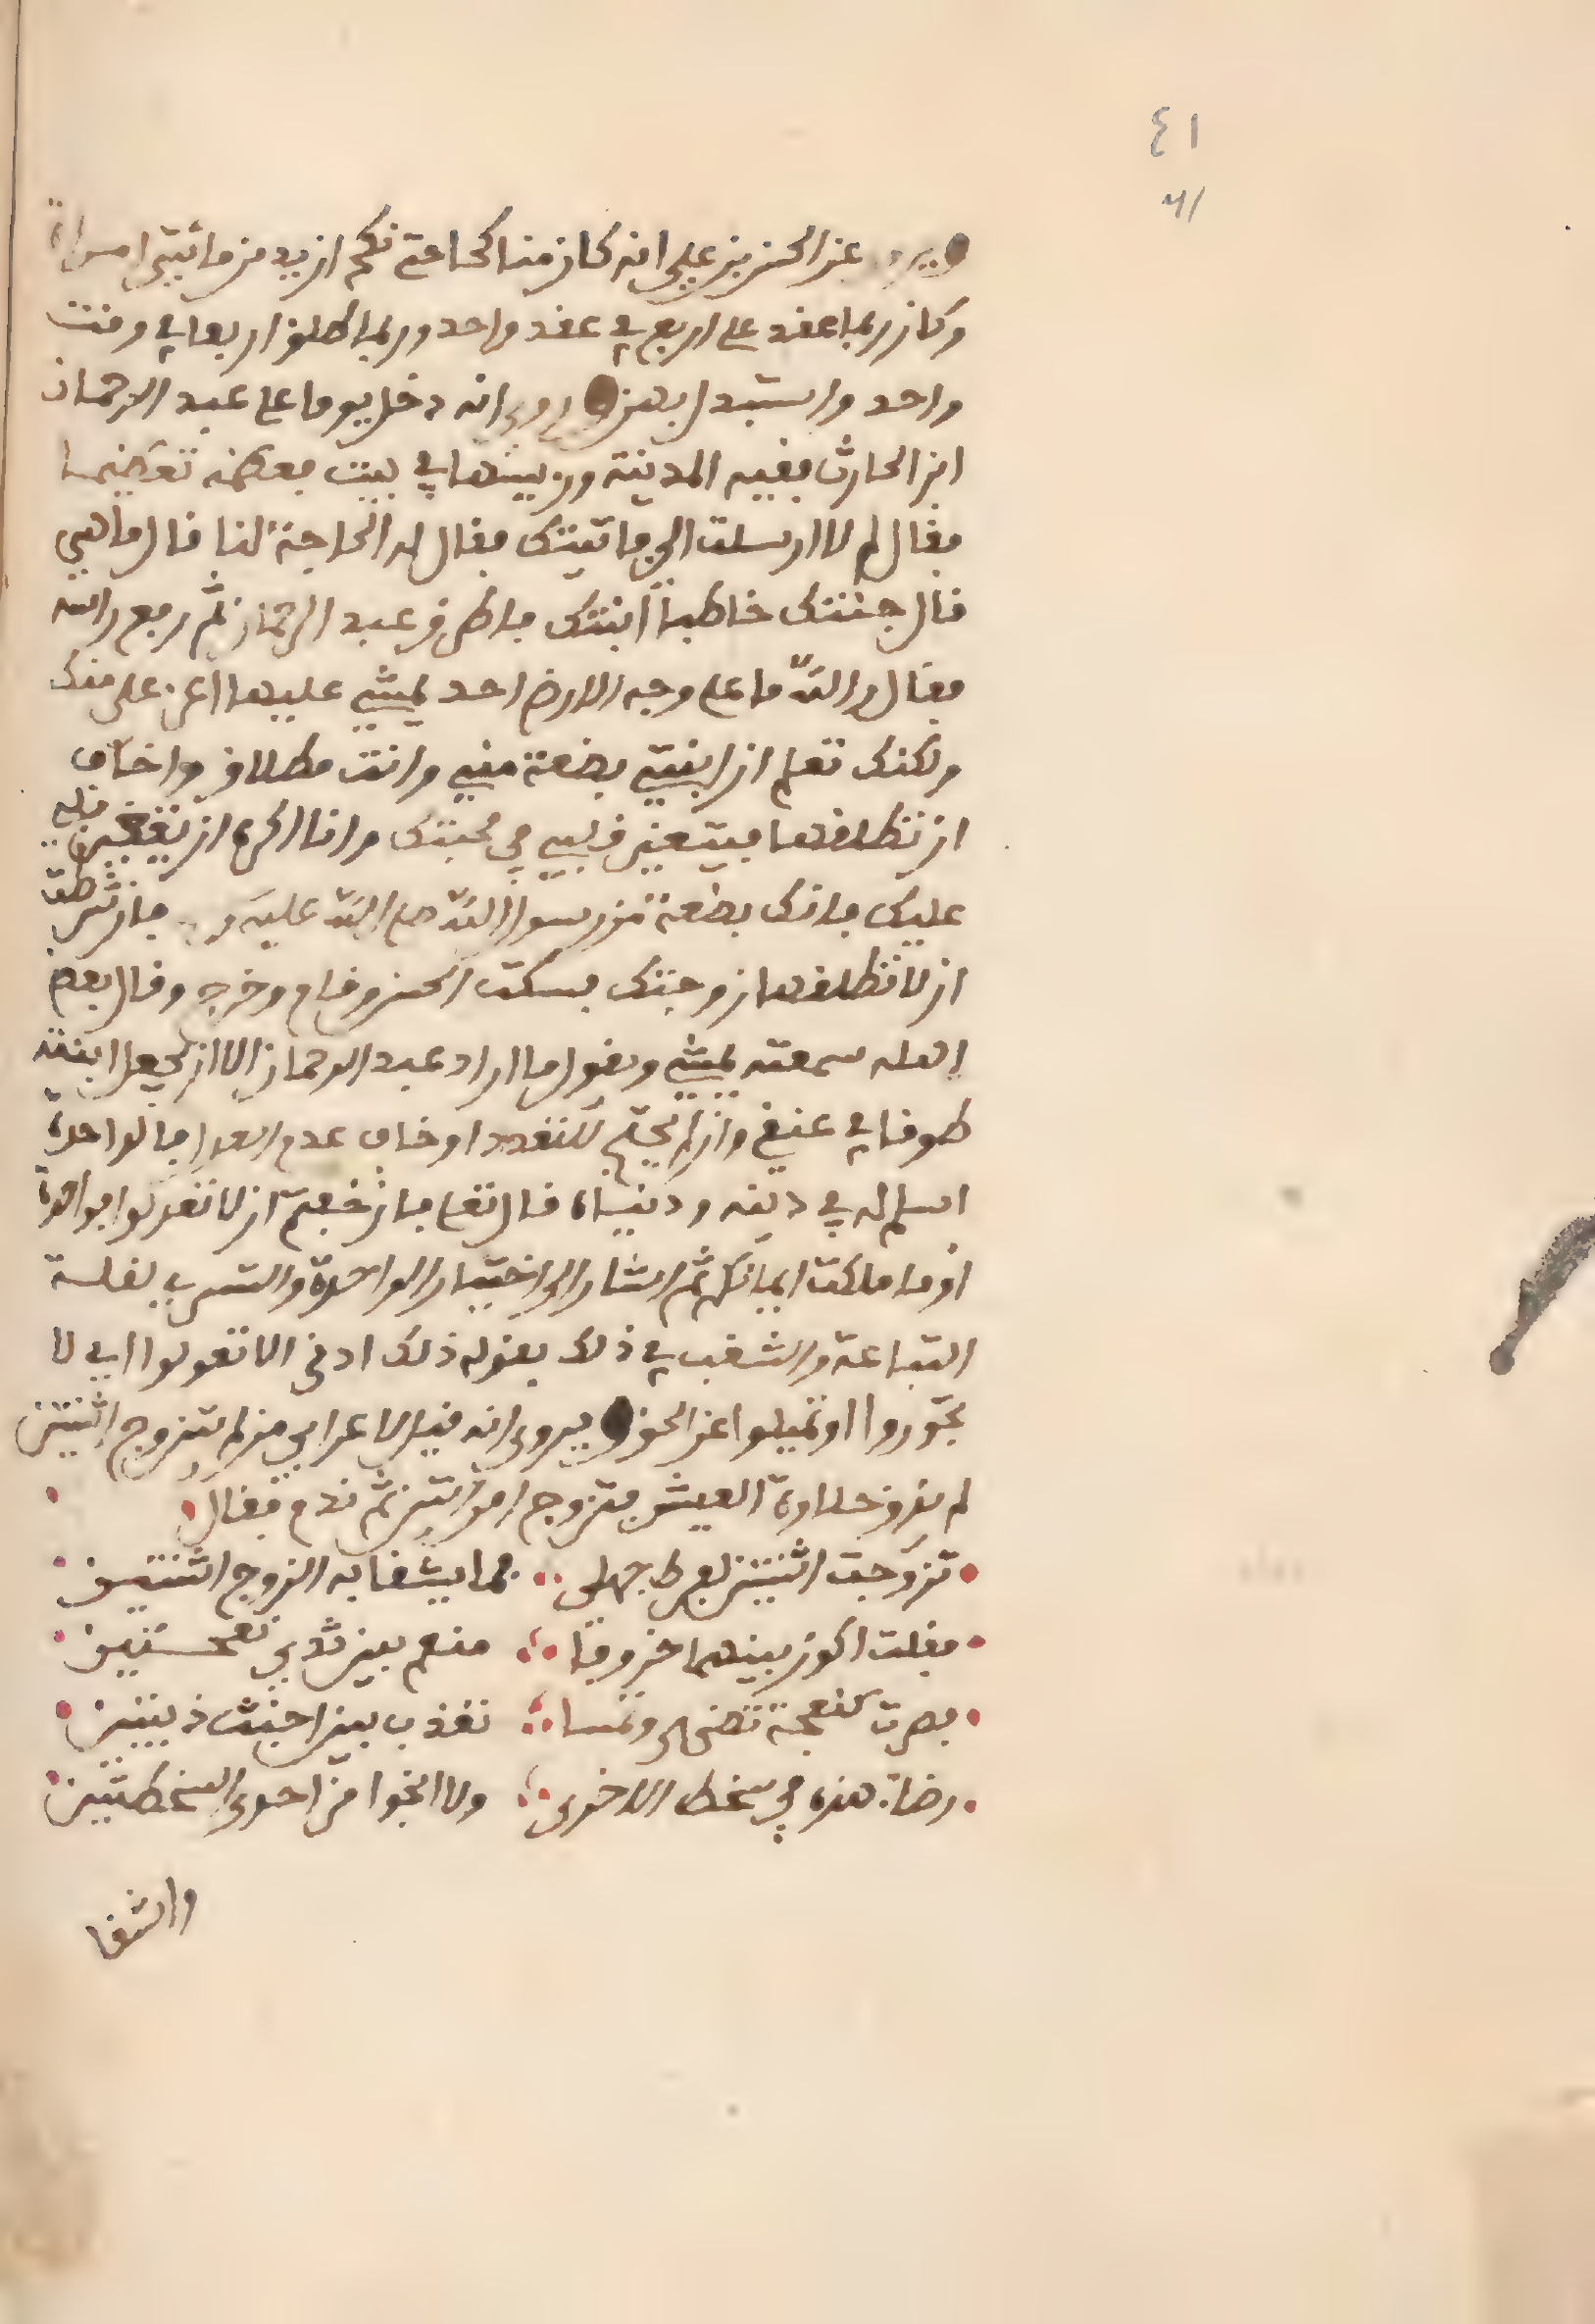 ٤١
٤١
ويروى عن الحسن بن علي انه كان مناكحا حتى نكح ازيد من مائتي امراة
وكان ربما عقد على اربع في عقد واحد وربما طلق اربعا في وقت
واحد واستبدل بهن وروي انه دخل يوما على عبد الرحمان
ابن الحارث فقيه المدينة ورييسها في بيت فعظمه تعظيما
فقال لم لا ارسلت الي فاتيتك فقال له الحاجة لنا قال ما هي
قال جئتك خاطبا ابنتك فاطرق عبد الرحمان ثم رفع راسه
فقال والله ما على وجه الارض احد يمشي عليها اعز علي منك
ولكنك تعلم ان ابنتي بضعة مني وانت مطلاق واخاف
ان تطلقها فيتغير قلبي في محبتك وانا اكره ان يتغير قلبي
عليك فانك بضعة من رسول الله صلى الله عليه و فان شرطت
ان لا تطلقها زوجتك فسكت الحسن وقام وخرج وقال بعض
اهله سمعته يمشي ويقول ما اراد عبد الرحمان الا ان يجعل ابنته
طوقا في عنقي وان لم يحتج للتعدد او خاف عدم العدل فالواحدة
اسلم له في دينه ودنياه قال تعلى فان خفتم ان لا تعدلوا فواحدة
او ما ملكت ايمانكم ثم اشار الى اختيار الواحدة والتسري لقلة
التباعة والشغب في ذلك بقوله ذلك ادنى الا تعولوا اي لا
تجوروا او تميلوا عن الحق ويروى انه قيل لاعرابي من لم يتزوج اثنتين
لم يذق حلاوة العيش فتزوج امراتين ثم ندم فقال
تزوجت اثنتين لفرط جهلي بما يشقا به الزوج اثنتين
فقلت اكون بينهما خروفا منعم بين ثديي نعجتين
فصرت كنعجة تضحى وتمسا تعذب بين اخبث ذيبتين
رضاء هذه في سخط الاخرى ولا انجوا من احدى السخطتين
والشقا